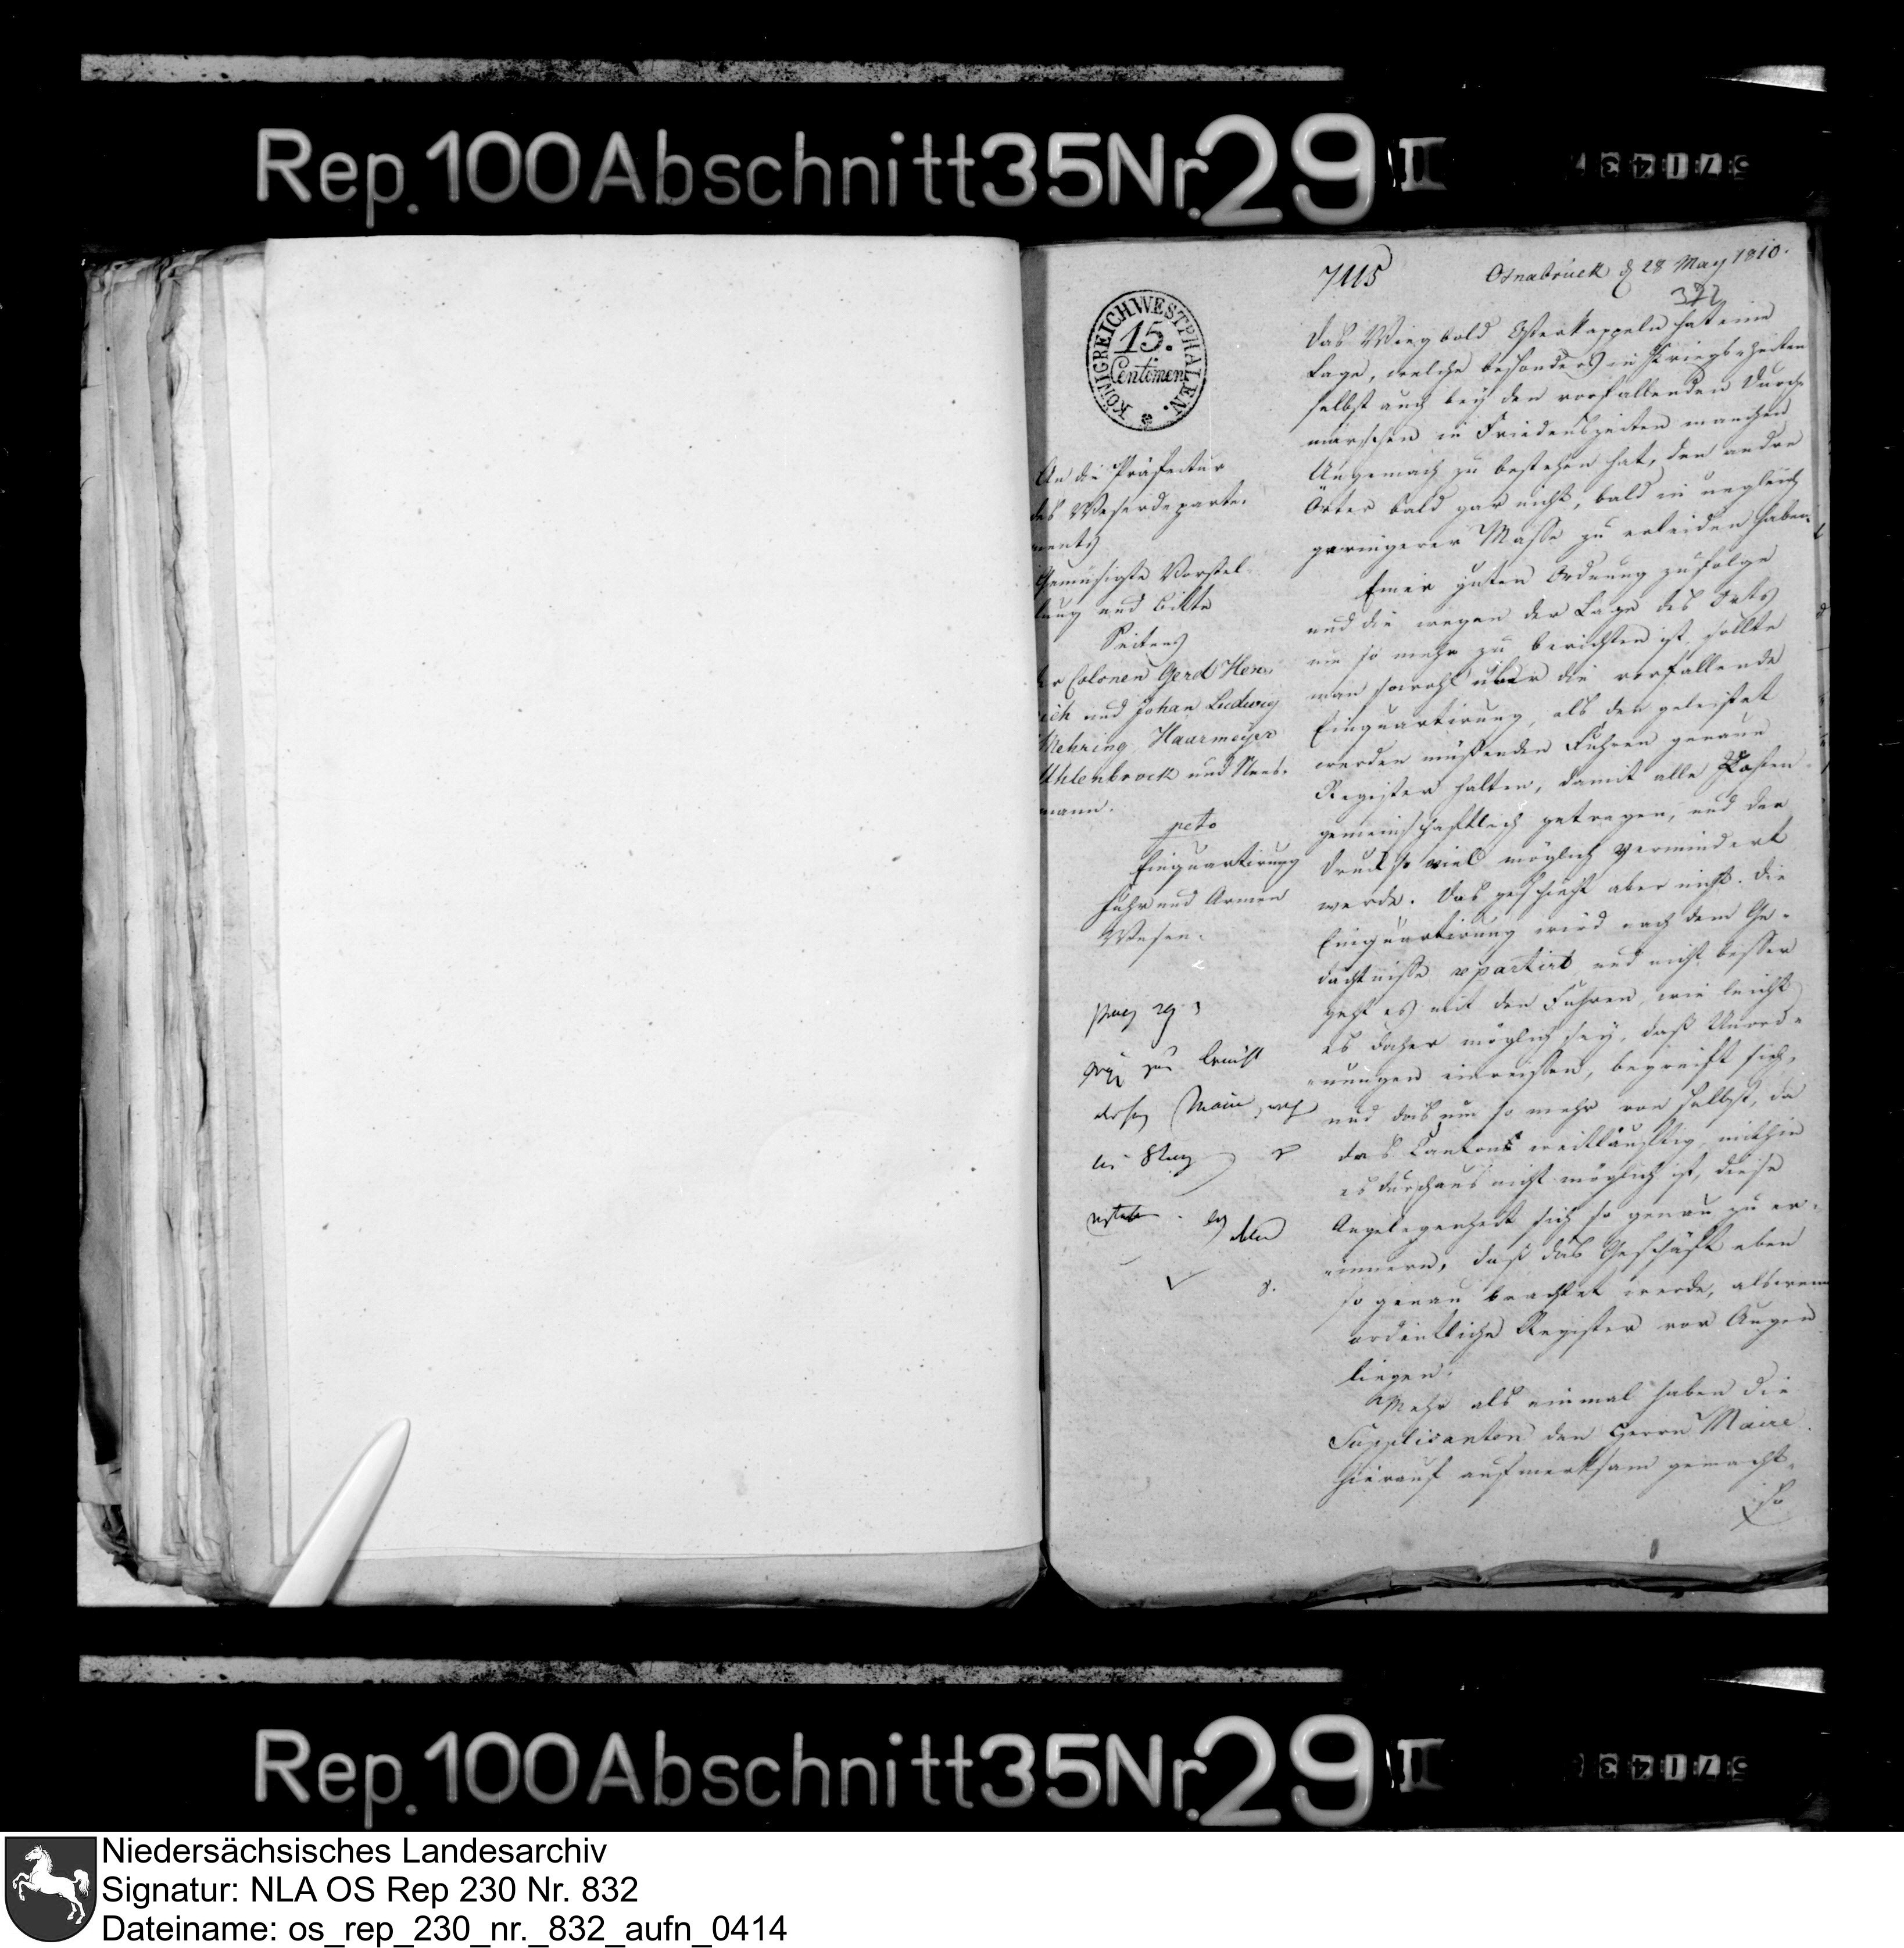 Rep. 100 Abschnitt 35 Nr. 29 II
7115
Osnabrück d 28 May 1810.
322
KÖNIGREICH WESTPHALEN.
15.
Centimen
An die Präfectur
des Weserdeparte-
ments
Gemüsigte Vorstel-
lung und Bitte
Seitens
der Colonen Gerd Hen
rich und Johan Ludwig
Mehring, Haarmeyer
Uhlenbrock und
mann.
pcto
Einquartirung
Fuhr und Armen
Wesen.
Maire
Das Wiegbold Osterkappeln hat eine
Lage, welche besonders in Kriegszeiten
selbst auch bey den vorfallenden Durch
märschen in Friedenszeiten manchen
Ungemach zu bestehen hat, den andre
Örter bald gar nicht, bald in ungleich
geringerer Masse zu erleiden haben.
Einer guten Ordnung zufolge
und die wegen der Lage des Orts
um so mehr zu berichten ist, sollte
man sowohl über die vorfallende
Einquartirung, als den geleistet
werden müssenden Fuhren genaue
Register halten, damit alle Lasten
gemeinschaftlich getragen, und der
Druck so viel möglich vermindert
werde. Das geschieht aber nicht. Die
Einquartirung wird nach dem Ge-
dächtnisse repartirt und nicht besser
geht es mit den Fuhren, wie leicht
es daher möglich sey, daß Unord-
-nungen einreissen, begreift sich,
und das um so mehr von selbst, da
das Canton weitläuftig, mithin
es durchaus nicht möglich ist, diese
Angelegenheit sich so genau zu er-
-innern, daß das Geschäft eben
so genau beachtet werde, als wenn
ordentliche Register vor Augen
liegen.
Mehr als einmal haben die
Supplicanten den Herrn Maire
hierauf aufmerksam gemacht,
so
Rep. 100 Abschnitt 35 Nr. 29 II
Niedersächsisches Landesarchiv
Signatur: NLA OS Rep 230 Nr. 832
Dateiname: os_rep_230_nr._832_aufn_0414